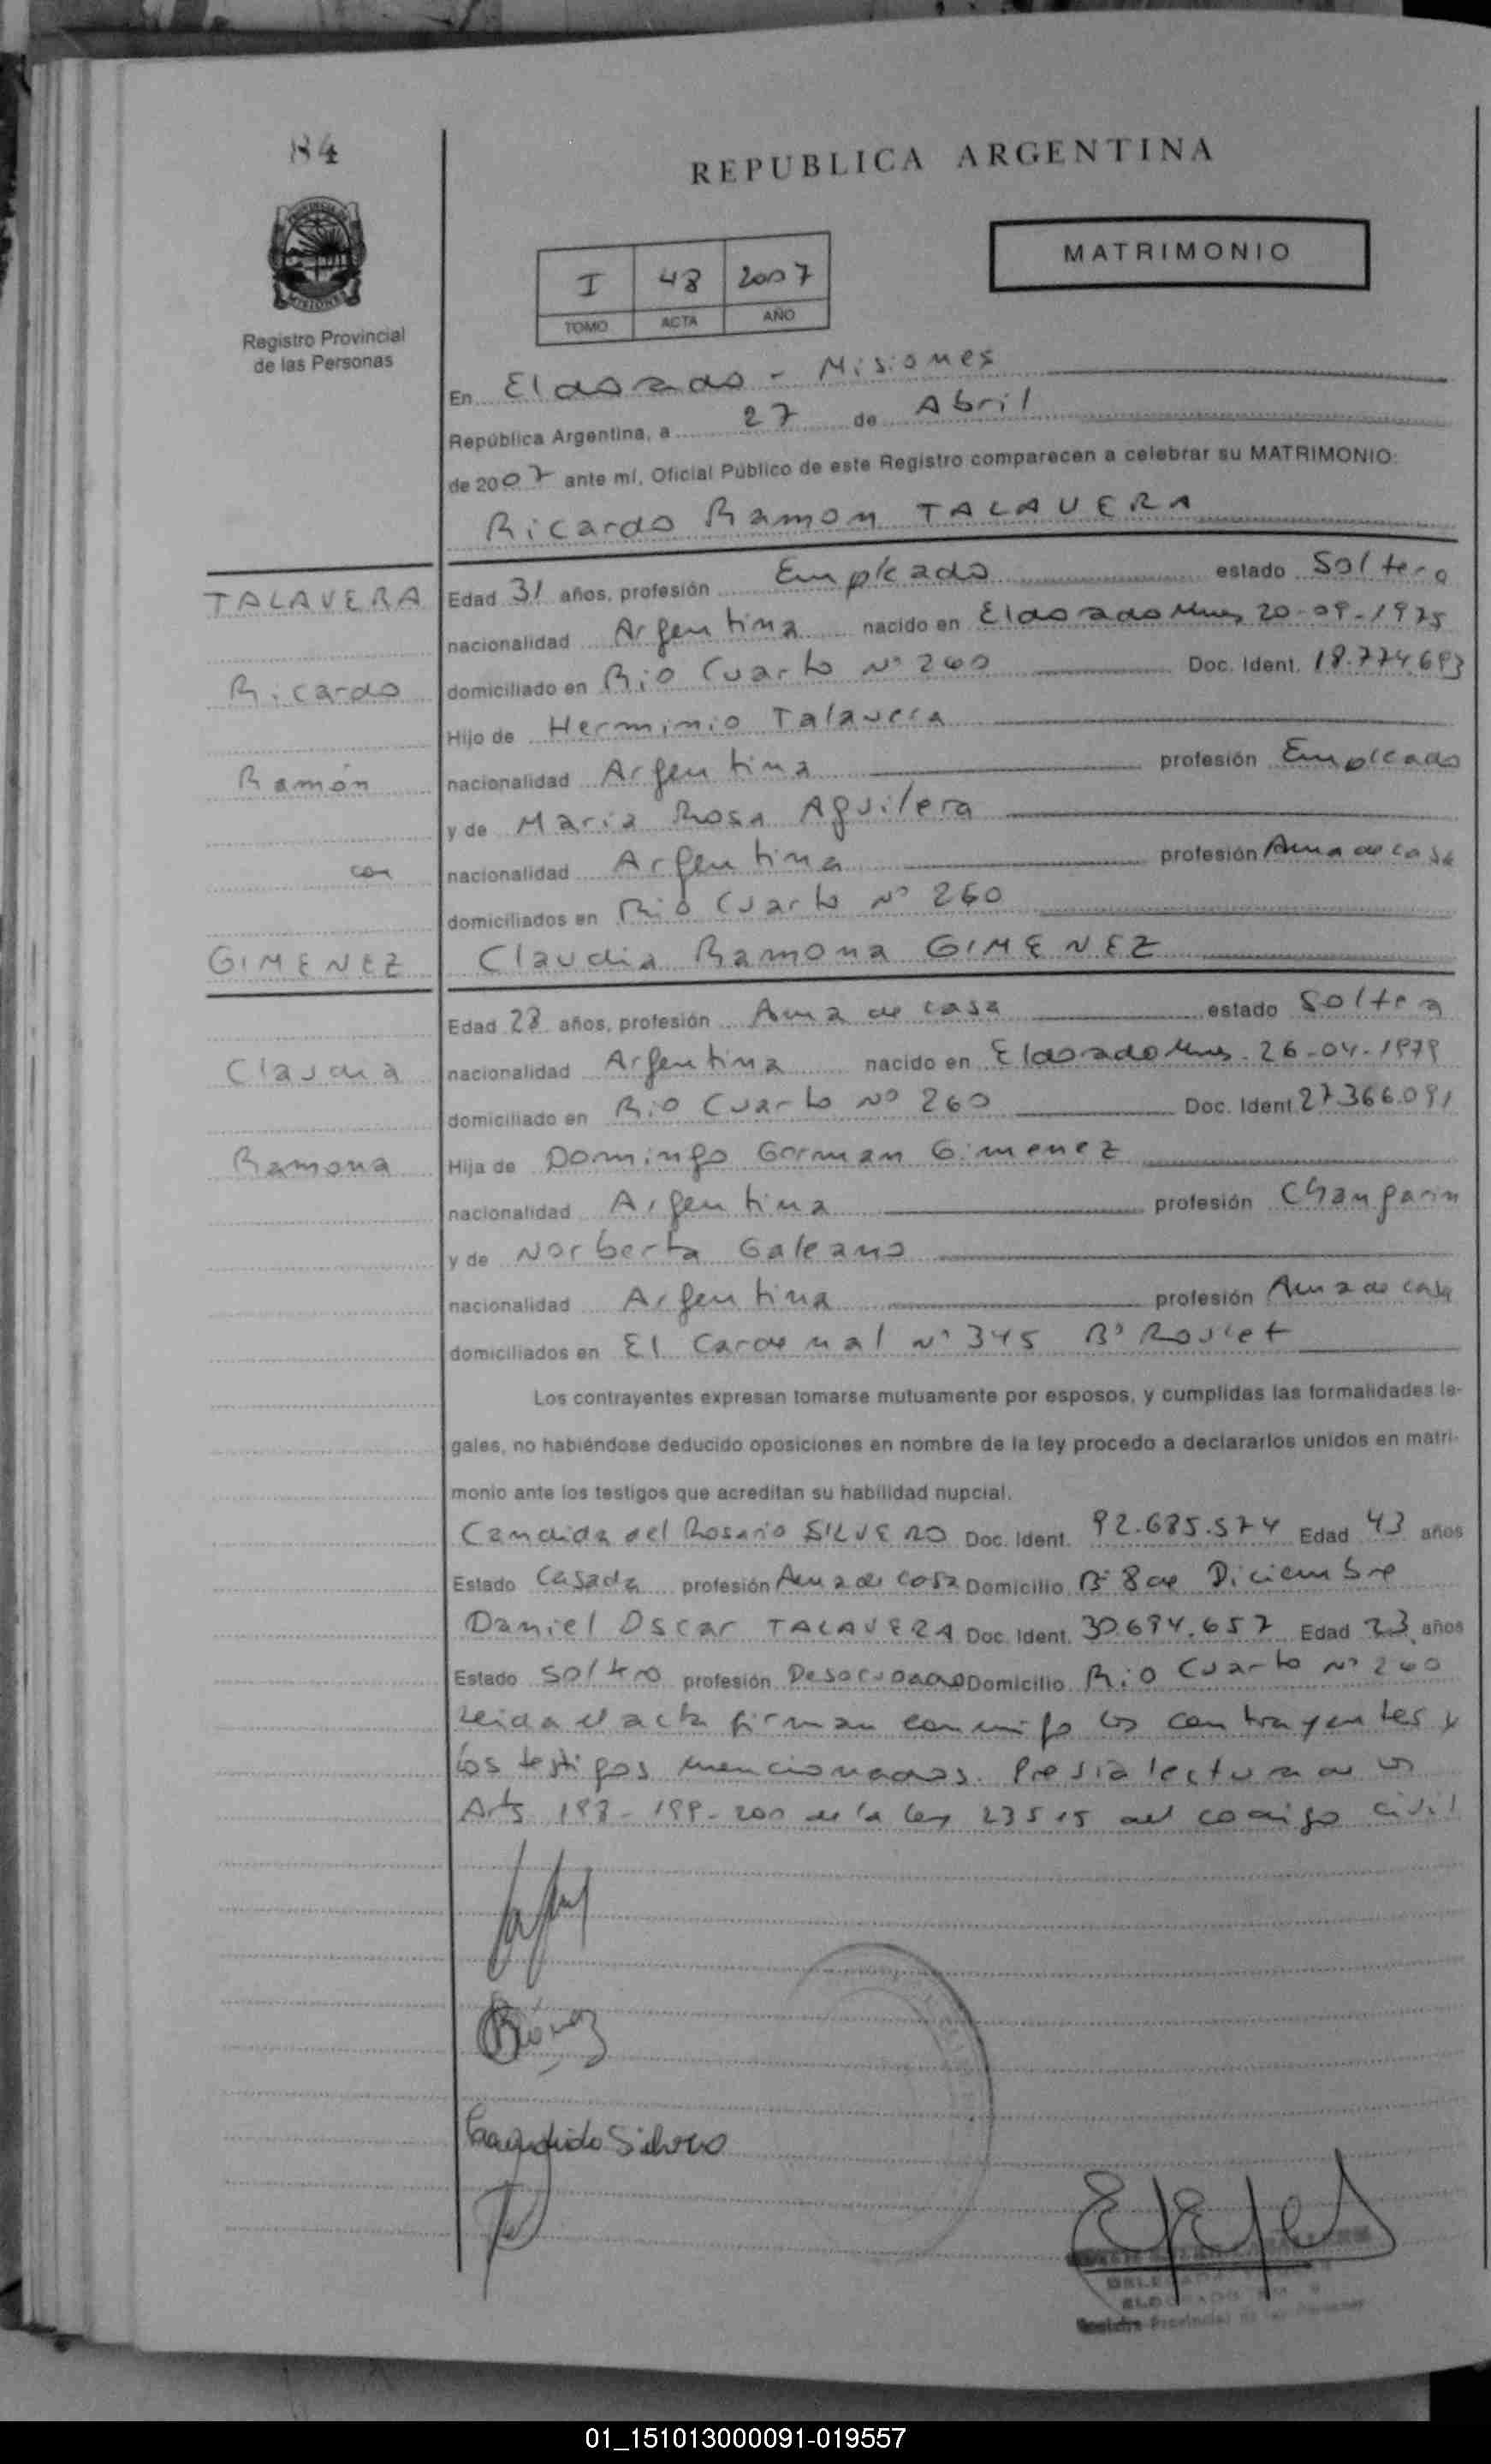 84
REPUBLICA ARGENTINA
MATRIMONIO
I 48 2007
TOMO ACTA AÑO
Registro Provincial
de las Personas
En Eldorado - Misiones
República Argentina, a 27 de Abril
de 2007 ante mí, Oficial Público de este Registro comparecen a celebrar su MATRIMONIO:
Ricardo Ramon TALAVERA
TALAVERA
Edad 31 años, profesión Empleado estado Soltero
nacionalidad Argentina nacido en Eldorado Mnes 20-09-1975
Ricardo
domiciliado en Rio Cuarto Nº 260 Doc. Ident. 18.774.693
Hijo de Herminio Talavera
Ramón
nacionalidad Argentina profesión Empleado
y de Maria Rosa Aguilera
con
nacionalidad Argentina profesión Ama de casa
domiciliados en Rio Cuarto Nº 260
GIMENEZ
Claudia Ramona GIMENEZ
Edad 28 años, profesión Ama de casa estado Soltera
Claudia
nacionalidad Argentina nacido en Eldorado Mnes. 26-04-1979
domiciliado en Rio Cuarto Nº 260 Doc. Ident. 27.366.091
Ramona
Hija de Domingo German Gimenez
nacionalidad Argentina profesión Changarin
y de Norberta Galeano
nacionalidad Argentina profesión Ama de casa
domiciliados en El Cardenal Nº 345 Bº Roulet
Los contrayentes expresan tomarse mutuamente por esposos, y cumplidas las formalidades le-
gales, no habiéndose deducido oposiciones en nombre de la ley procedo a declararlos unidos en matri-
monio ante los testigos que acreditan su habilidad nupcial.
Candida del Rosario SILVERO Doc. Ident. 92.685.574 Edad 43 años
Estado Casada profesión Ama de casa Domicilio Bº 8 de Diciembre
Daniel Oscar TALAVERA Doc. Ident. 30.694.657 Edad 23 años
Estado Soltero profesión Desocupado Domicilio Rio Cuarto Nº 260
Leida el acta firman conmigo los contrayentes y
los testigos mencionados. Previa lectura de los
Arts 198-199-200 de la ley 23515 del codigo civil
Candida Silvero
Registro Provincial de las Personas
01_151013000091-019557